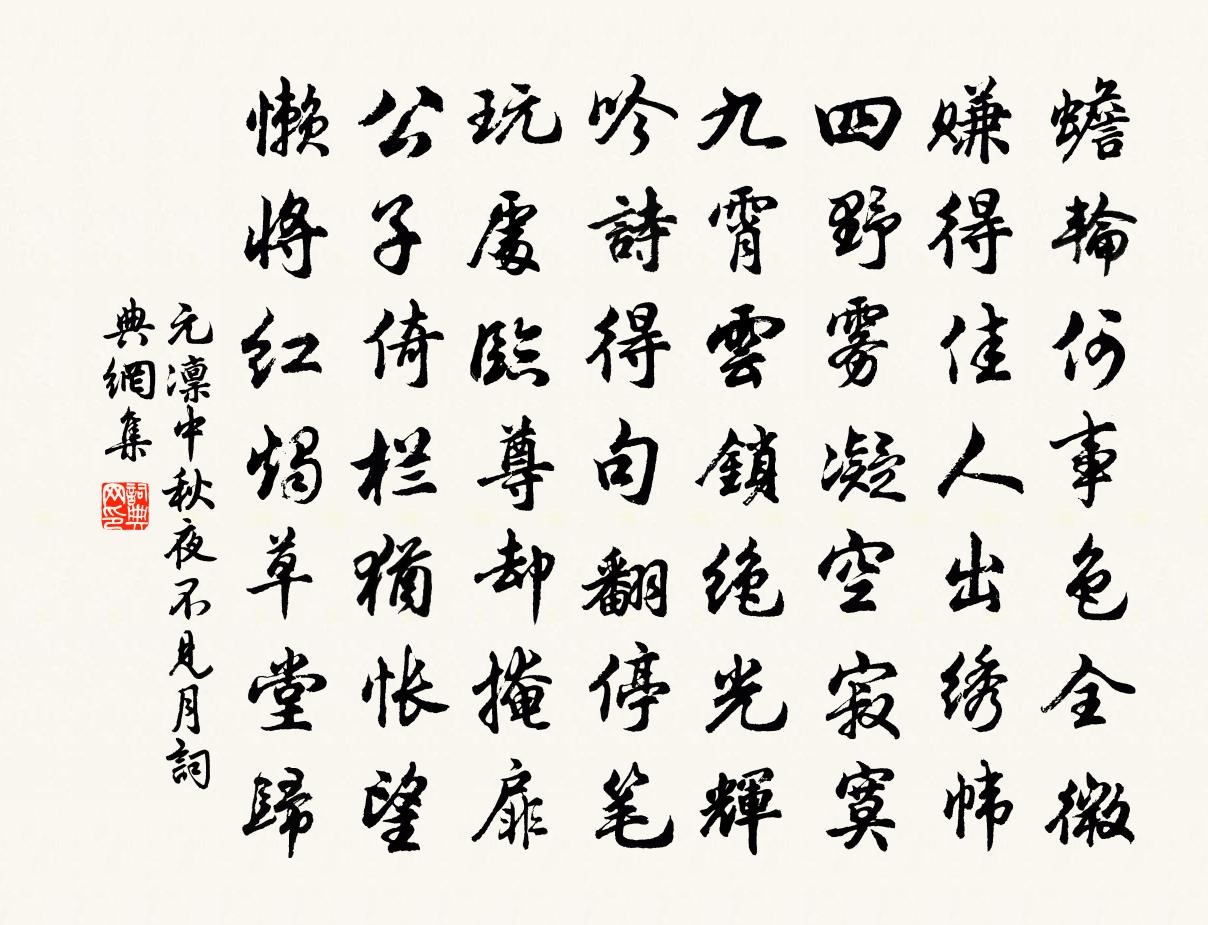 蟾輪何事色全微
赚得佳人出绣帏
四野雾凝空寂寞
九霄雲鎖绝光輝
吟詩得句翻停笔
玩處臨尊却掩扉
公子倚栏猶怅望
懒将红烛草堂歸
元凛中秋夜不見月詞
典網集
詞典网印